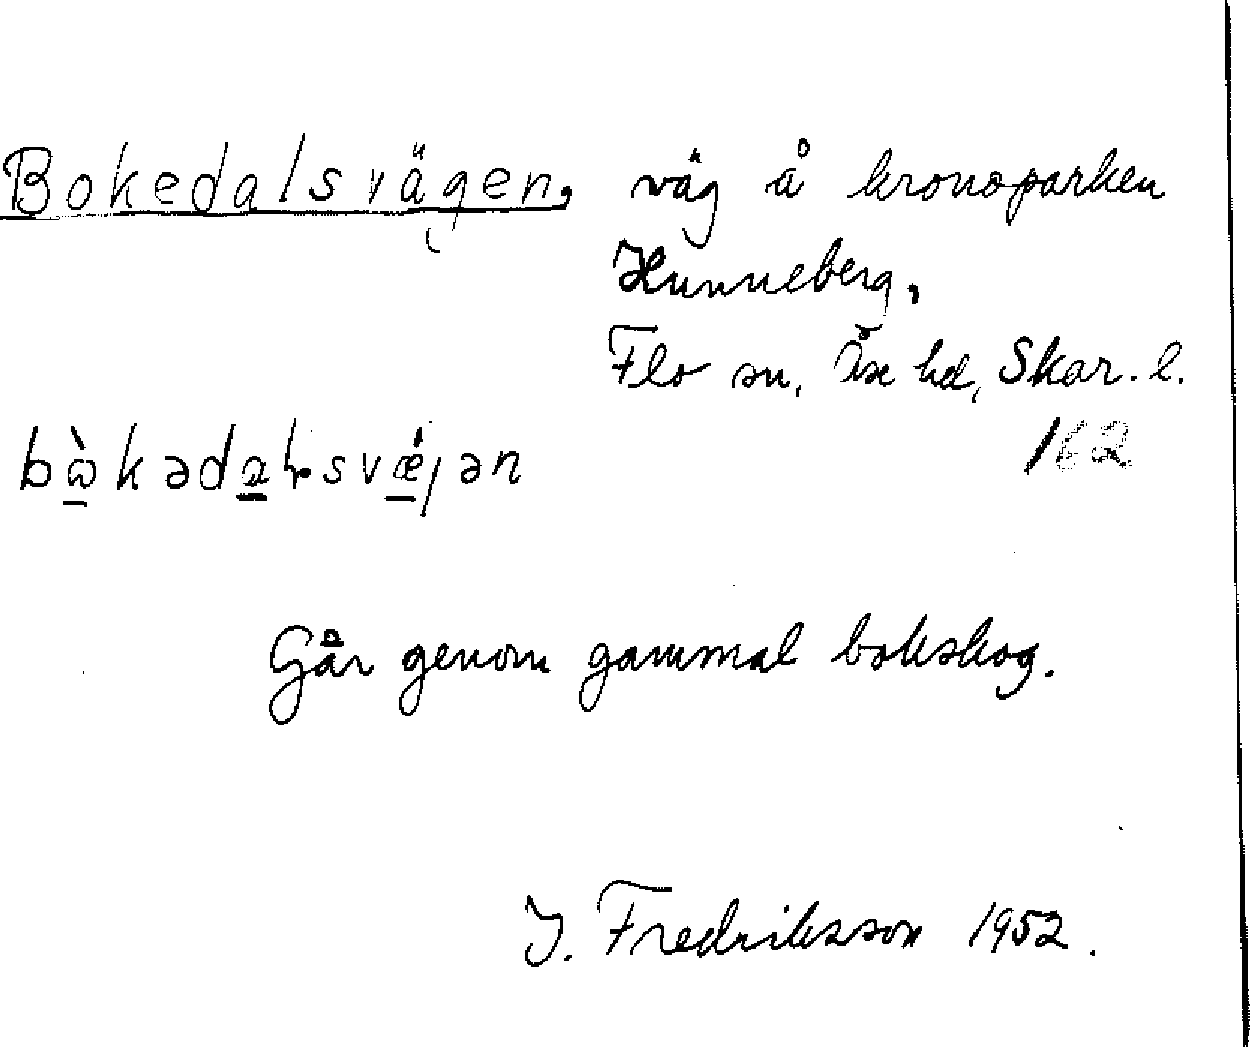 Bokedalsvägen, väg å kronoparken
Hunneberg,
Flo sn, Åse hd, Skar. l.
162
bὼkədaɽsvǽjən
Går genom gammal bokskog.
J. Fredriksson 1952.